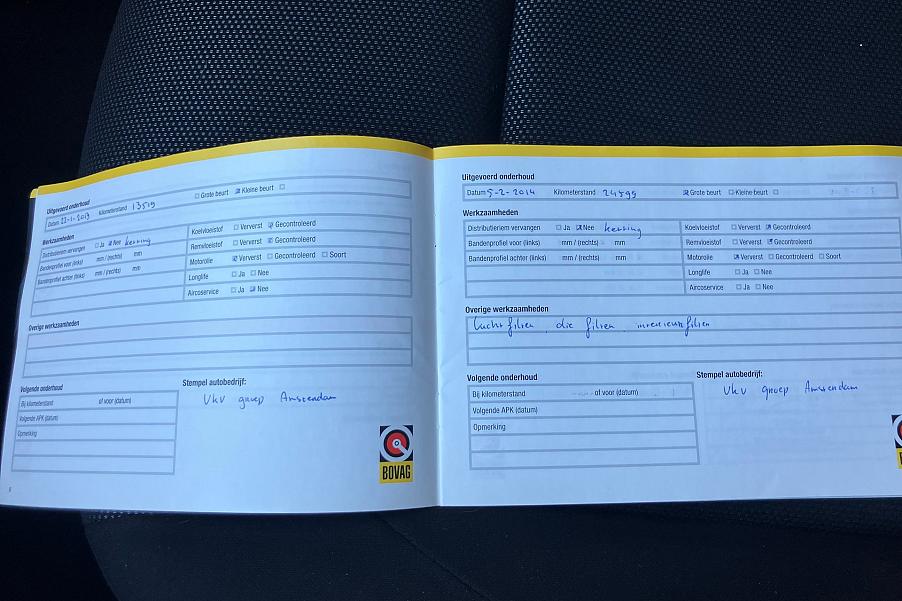 Uitgevoerd onderhoud
Datum 22-1-2013 Kilometerstand 13519 Grote beurt Kleine beurt
Werkzaamheden
Distributieriem vervangen Ja Nee ketting
Bandenprofiel voor (links) mm / (rechts) mm
Bandenprofiel achter (links) mm / (rechts) mm
Koelvloeistof Ververst Gecontroleerd
Remvloeistof Ververst Gecontroleerd
Motorolie Ververst Gecontroleerd Soort
Longlife Ja Nee
Aircoservice Ja Nee
Overige werkzaamheden
Volgende onderhoud
Bij kilometerstand of voor (datum)
Volgende APK (datum)
Opmerking
Stempel autobedrijf:
VKV groep Amsterdam
BOVAG
Uitgevoerd onderhoud
Datum 5-2-2014 Kilometerstand 24595 Grote beurt Kleine beurt
Werkzaamheden
Distributieriem vervangen Ja Nee ketting
Bandenprofiel voor (links) mm / (rechts) mm
Bandenprofiel achter (links) mm / (rechts) mm
Koelvloeistof Ververst Gecontroleerd
Remvloeistof Ververst Gecontroleerd
Motorolie Ververst Gecontroleerd Soort
Longlife Ja Nee
Aircoservice Ja Nee
Overige werkzaamheden
Lucht filter, olie filter, interieurfilter
Volgende onderhoud
Bij kilometerstand of voor (datum)
Volgende APK (datum)
Opmerking
Stempel autobedrijf:
VKV groep Amsterdam